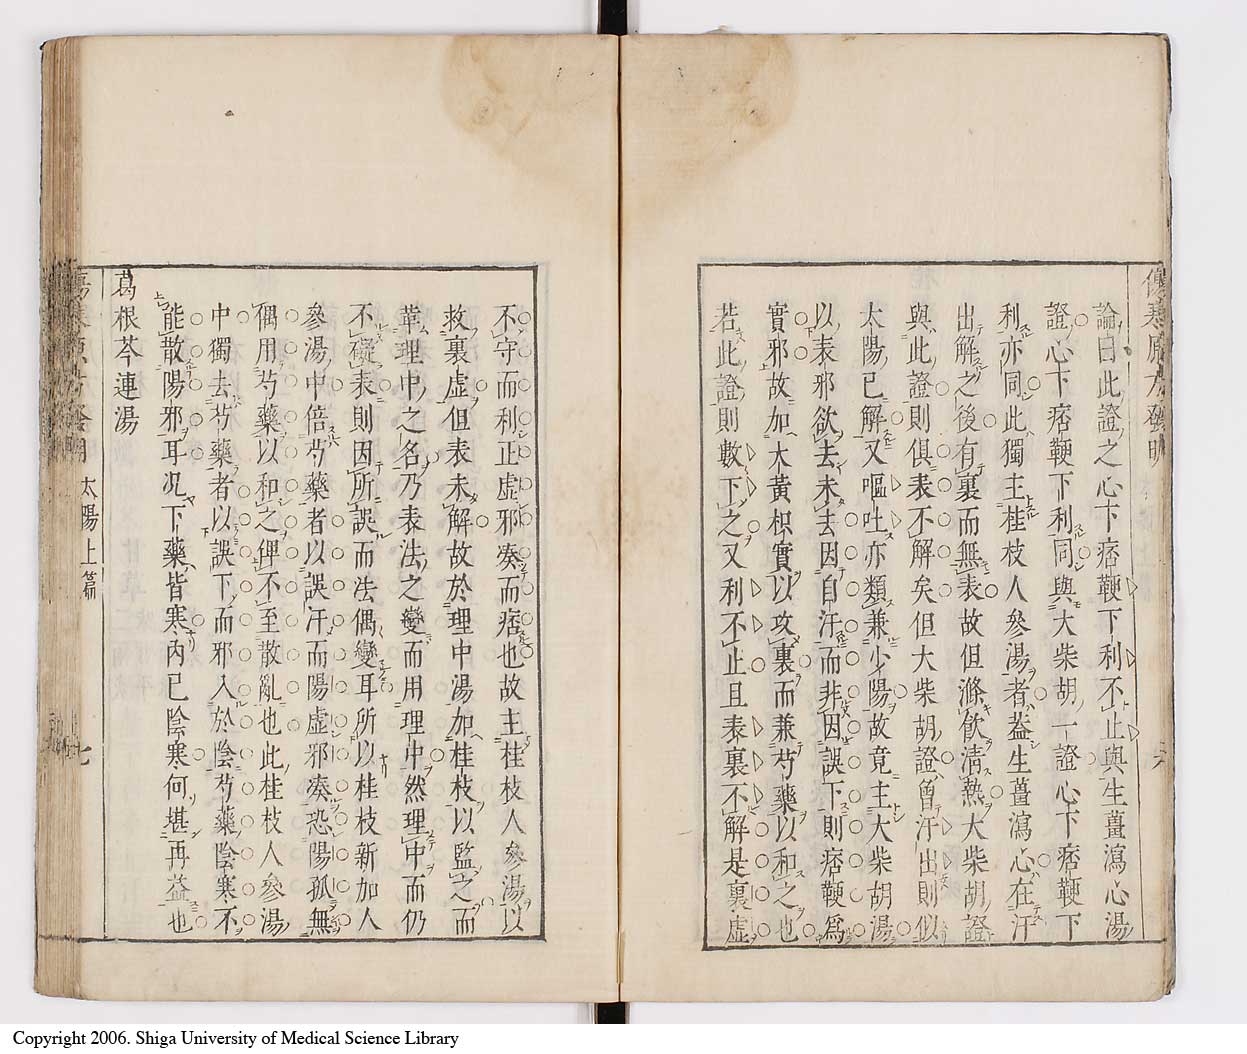 傷寒原方發明
六
論曰此證之心下痞鞕下利不止與生薑瀉心湯
證心下痞鞕下利同與大柴胡一證心下痞鞕下
利亦同此獨主桂枝人參湯者葢生薑瀉心在汗
出解之後有裏而無表故但滌飲清熱大柴胡證
與此證則俱表不解矣但大柴胡證曾汗出則似
太陽已解又嘔吐亦類兼少陽故竟主大柴胡湯
以表邪欲去未去因自汗而非因誤下則痞鞕爲
實邪故加大黃枳實以攻裏而兼芍藥以和之也
若此證則數下之又利不止且表裏不解是裏虛
不守而利正虛邪凑而痞也故主桂枝人參湯以
救裏虛但表未解故於理中湯加桂枝以監之而
革理中之名乃表法之變而用理中然理中而仍
不礙表則因所誤而法偶變耳所以桂枝新加人
參湯中倍芍藥者以誤汗而陽虛邪凑恐陽孤無
偶用芍藥以和之俾不至散亂也此桂枝人參湯
中獨去芍藥者以誤下而邪入於陰芍藥陰寒不
能散陽邪耳况下藥皆寒內已陰寒何堪再益也
葛根芩連湯
太陽上篇
七
Copyright 2006. Shiga University of Medical Science Library